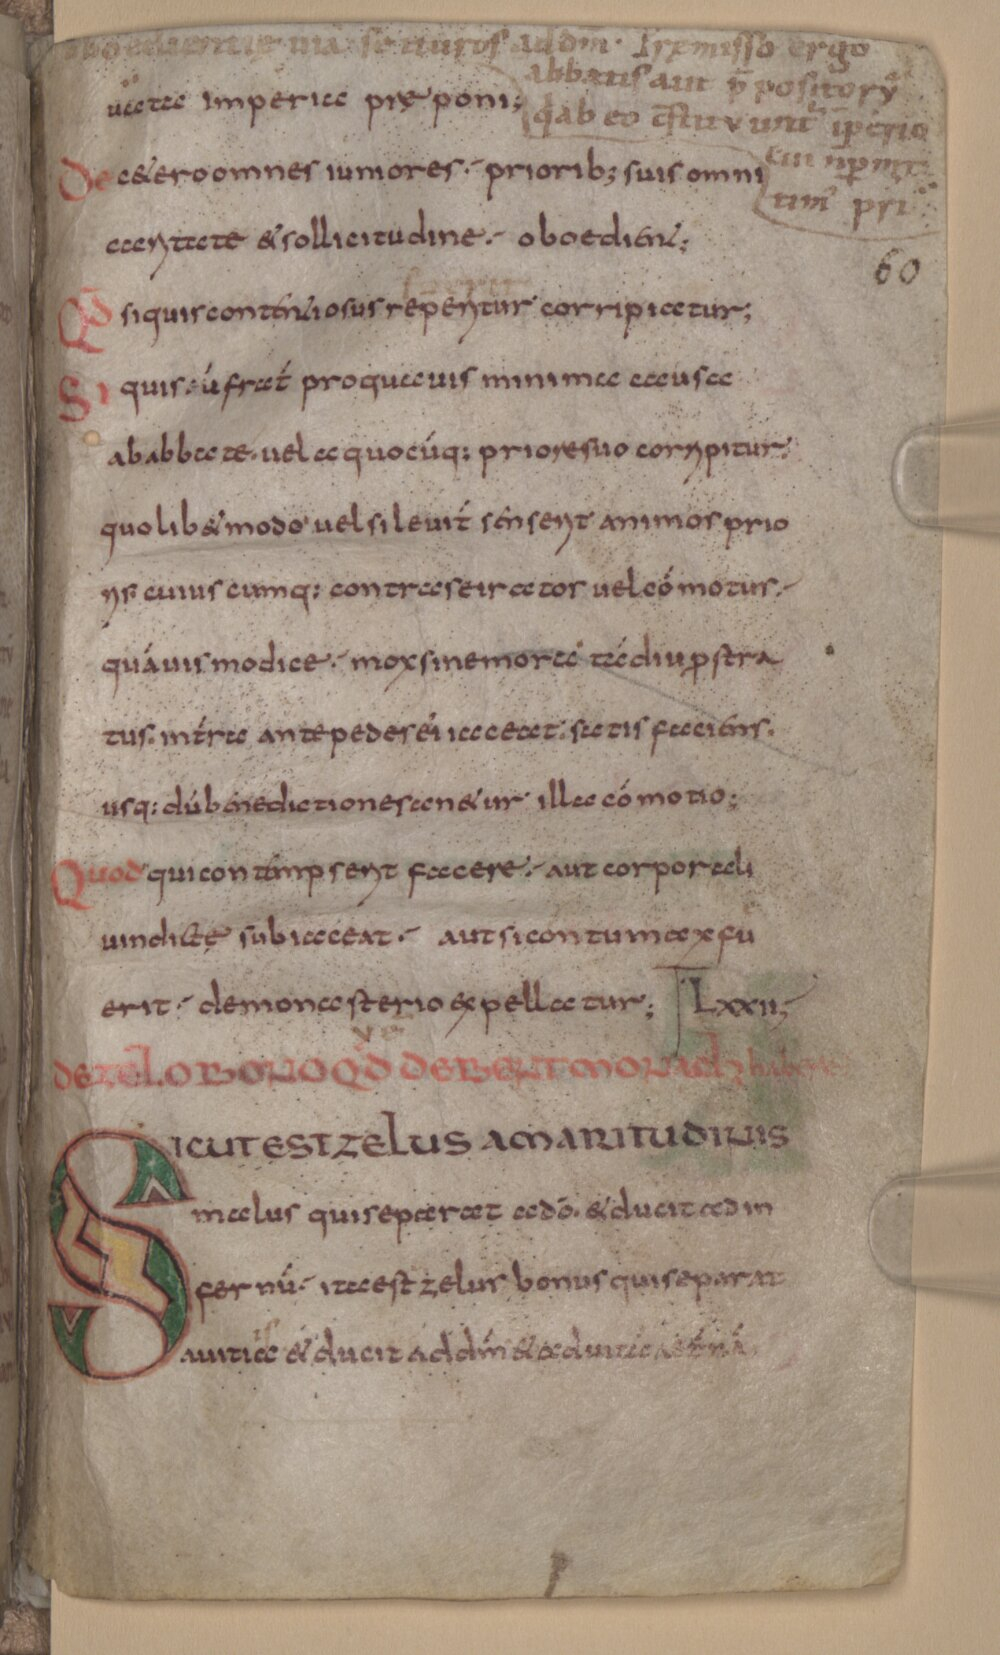 oboedientiæ uia se ituros ad dm̄. Præmisso ergo
abbatis aut p̄positorū
q̄ ab eo c̄stituunt̄ īperio
cui n̄ permit
tim̄ pri
uata imperia præponi;
60
De cetero omnes iuniores · priorib; suis omni
caritate & sollicitudine · oboediant;
Qd si quis contentiosus reperitur corripiatur;
Si quis aū frat̄ pro quauis minima causa
ab abbate · uel a quocūq; priore suo corripitur ·
quolib& modo uel si leuit̄ senserit animos prio
ris cuiuscumq; contra se iratos uel cōmotus ·
quāuis modice · mox sine mora tādiu ꝓstra
tus · in t̄ra ante pedes ei iaceat · satisfaciens ·
usq; dū benedictione san&ur illa cōmotio;
Quod qui contempserit facere · aut corporali
uindictæ subiaceat · aut si contumax fu
erit · de monasterio expellatur; LXXII;
DE ZELO BONO QD DEBENT MONACHI habere
SICUT EST ZELUS AMARITUDINIS
malus qui separat a dō · & ducit ad in
fernū · ita est zelus bonus qui separat
a uitia & ducit ad dm̄ & ad uitā aet̄nā